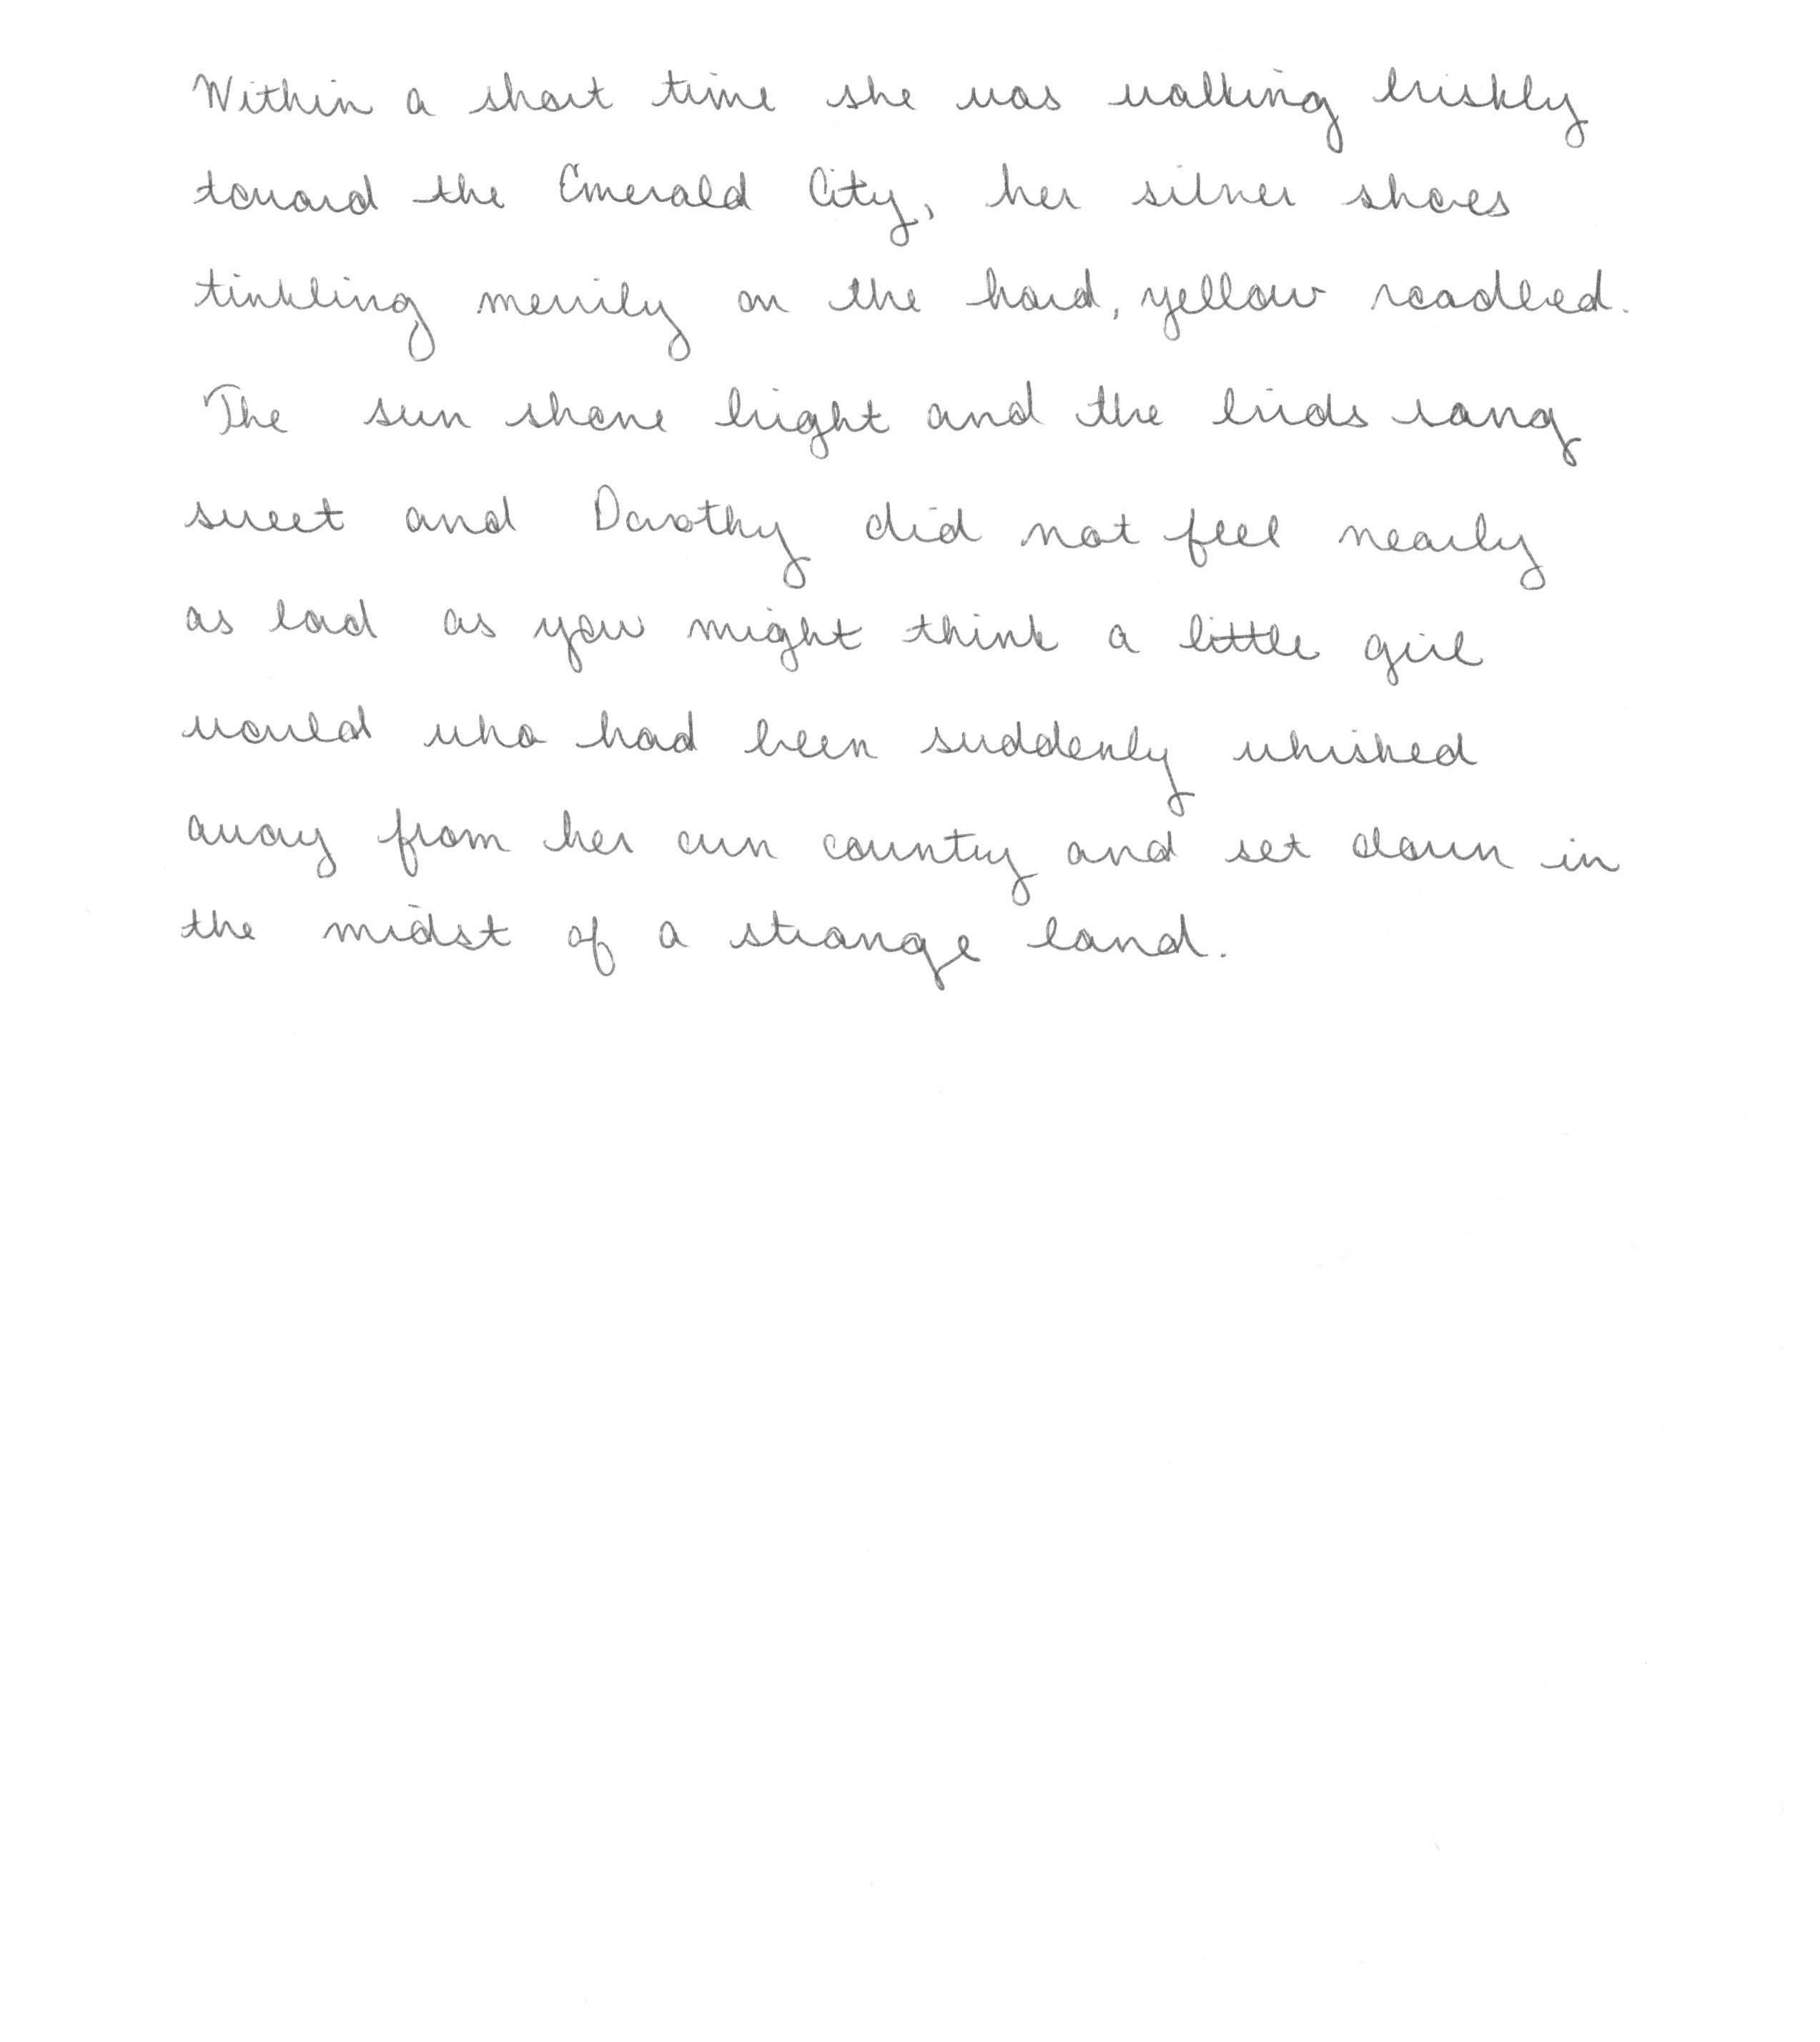 Within a short time she was walking briskly
toward the Emerald City, her silver shoes
tinkling merrily on the hard, yellow roadbed.
The sun shone bright and the birds sang
sweet and Dorothy did not feel nearly
as bad as you might think a little girl
would who had been suddenly whisked
away from her own country and set down in
the midst of a strange land.